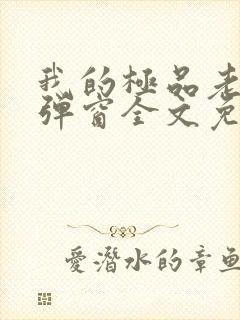 我的極品老
彈窗全文免
愛潛水的章魚